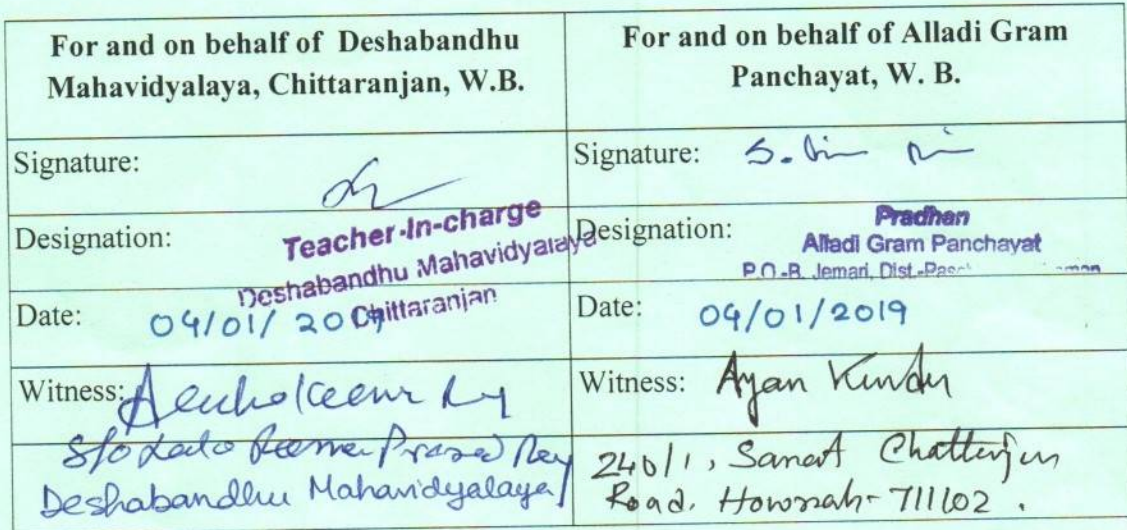 For and on behalf of Deshabandhu
Mahavidyalaya, Chittaranjan, W.B.
For and on behalf of Alladi Gram
Panchayat, W. B.
Signature:
Signature:
Designation: Teacher-In-charge
Deshabandhu Mahavidyalaya
Chittaranjan
Designation: Pradhan
Alladi Gram Panchayat
P.O.-R. Jemari, Dist.-
Date: 04/01/2019
Date: 04/01/2019
Witness:
S/O Prasad Ray
Deshabandhu Mahavidyalaya
Witness: Ayan Kundu
240/1, Sanat Chatterjee
Road, Howrah-711102.